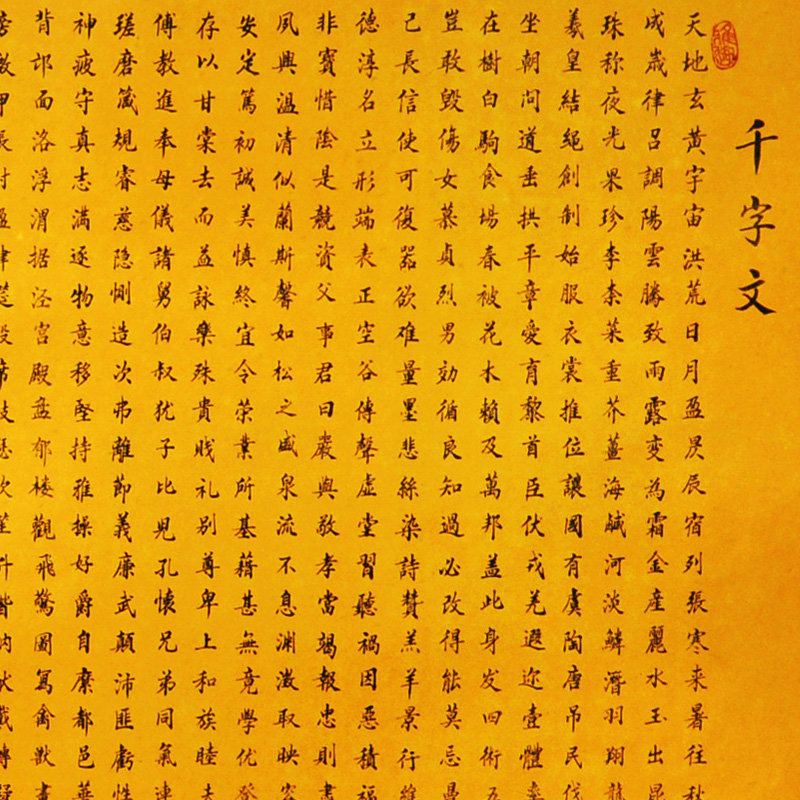 千字文
天地玄黃宇宙洪荒日月盈昃辰宿列張寒来暑往秋
成歲律呂調陽雲騰致雨露變為霜金產麗水玉出崑
珠称夜光果珍李柰菜重芥薑海鹹河淡鱗潛羽翔龍
羲皇結繩創制始服衣裳推位讓國有虞陶唐吊民伐
坐朝問道垂拱平章愛育黎首臣伏戎羌遐迩壹體率
在樹白駒食場春被花木賴及萬邦盖此身发四術五
豈敢毁傷女慕貞烈男効循良知過必改得能莫忌
己長信使可復器欲难量墨悲絲染詩賛羔羊景行維
德淳名立形端表正空谷傳聲虚堂習聽禍因惡積福
非寳惜陰是競資父事君曰嚴與敬孝當竭報忠則
夙興温清似蘭斯馨如松之盛泉流不息渊澂取映容
安定篤初誠美慎終宜令荣業所基藉甚無竟學优登
存以甘棠去而益詠樂殊貴贱礼别尊卑上和族睦夫
傅教進奉母儀諸舅伯叔犹子比見孔懷兄弟同氣連
瑳磨箴規睿慈隐惻造次弗離節義廉武顛沛匪虧性
神疲守真志满逐物意移堅持雅操好爵自糜都邑華
背邙面洛浮渭据泾宫殿盘郁楼觀飛驚圖寫禽獸畫